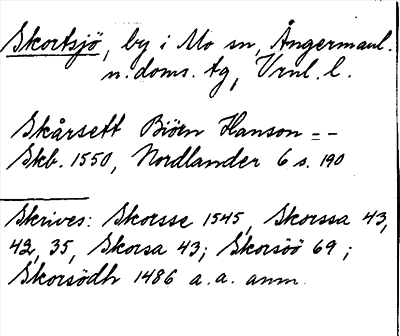 Skortsjö, by i Mo sn, Ångermanl.
n. doms. tg, Vrnl. l.
Skårsett Biöen Hanson = -
Skb. 1550, Nordlander 6 s. 190
Skrives: Skorsse 1545, Skorssa 43,
42, 35, Skorsa 43; Skorsöö 69;
Skorsödh 1486 a. a. anm.